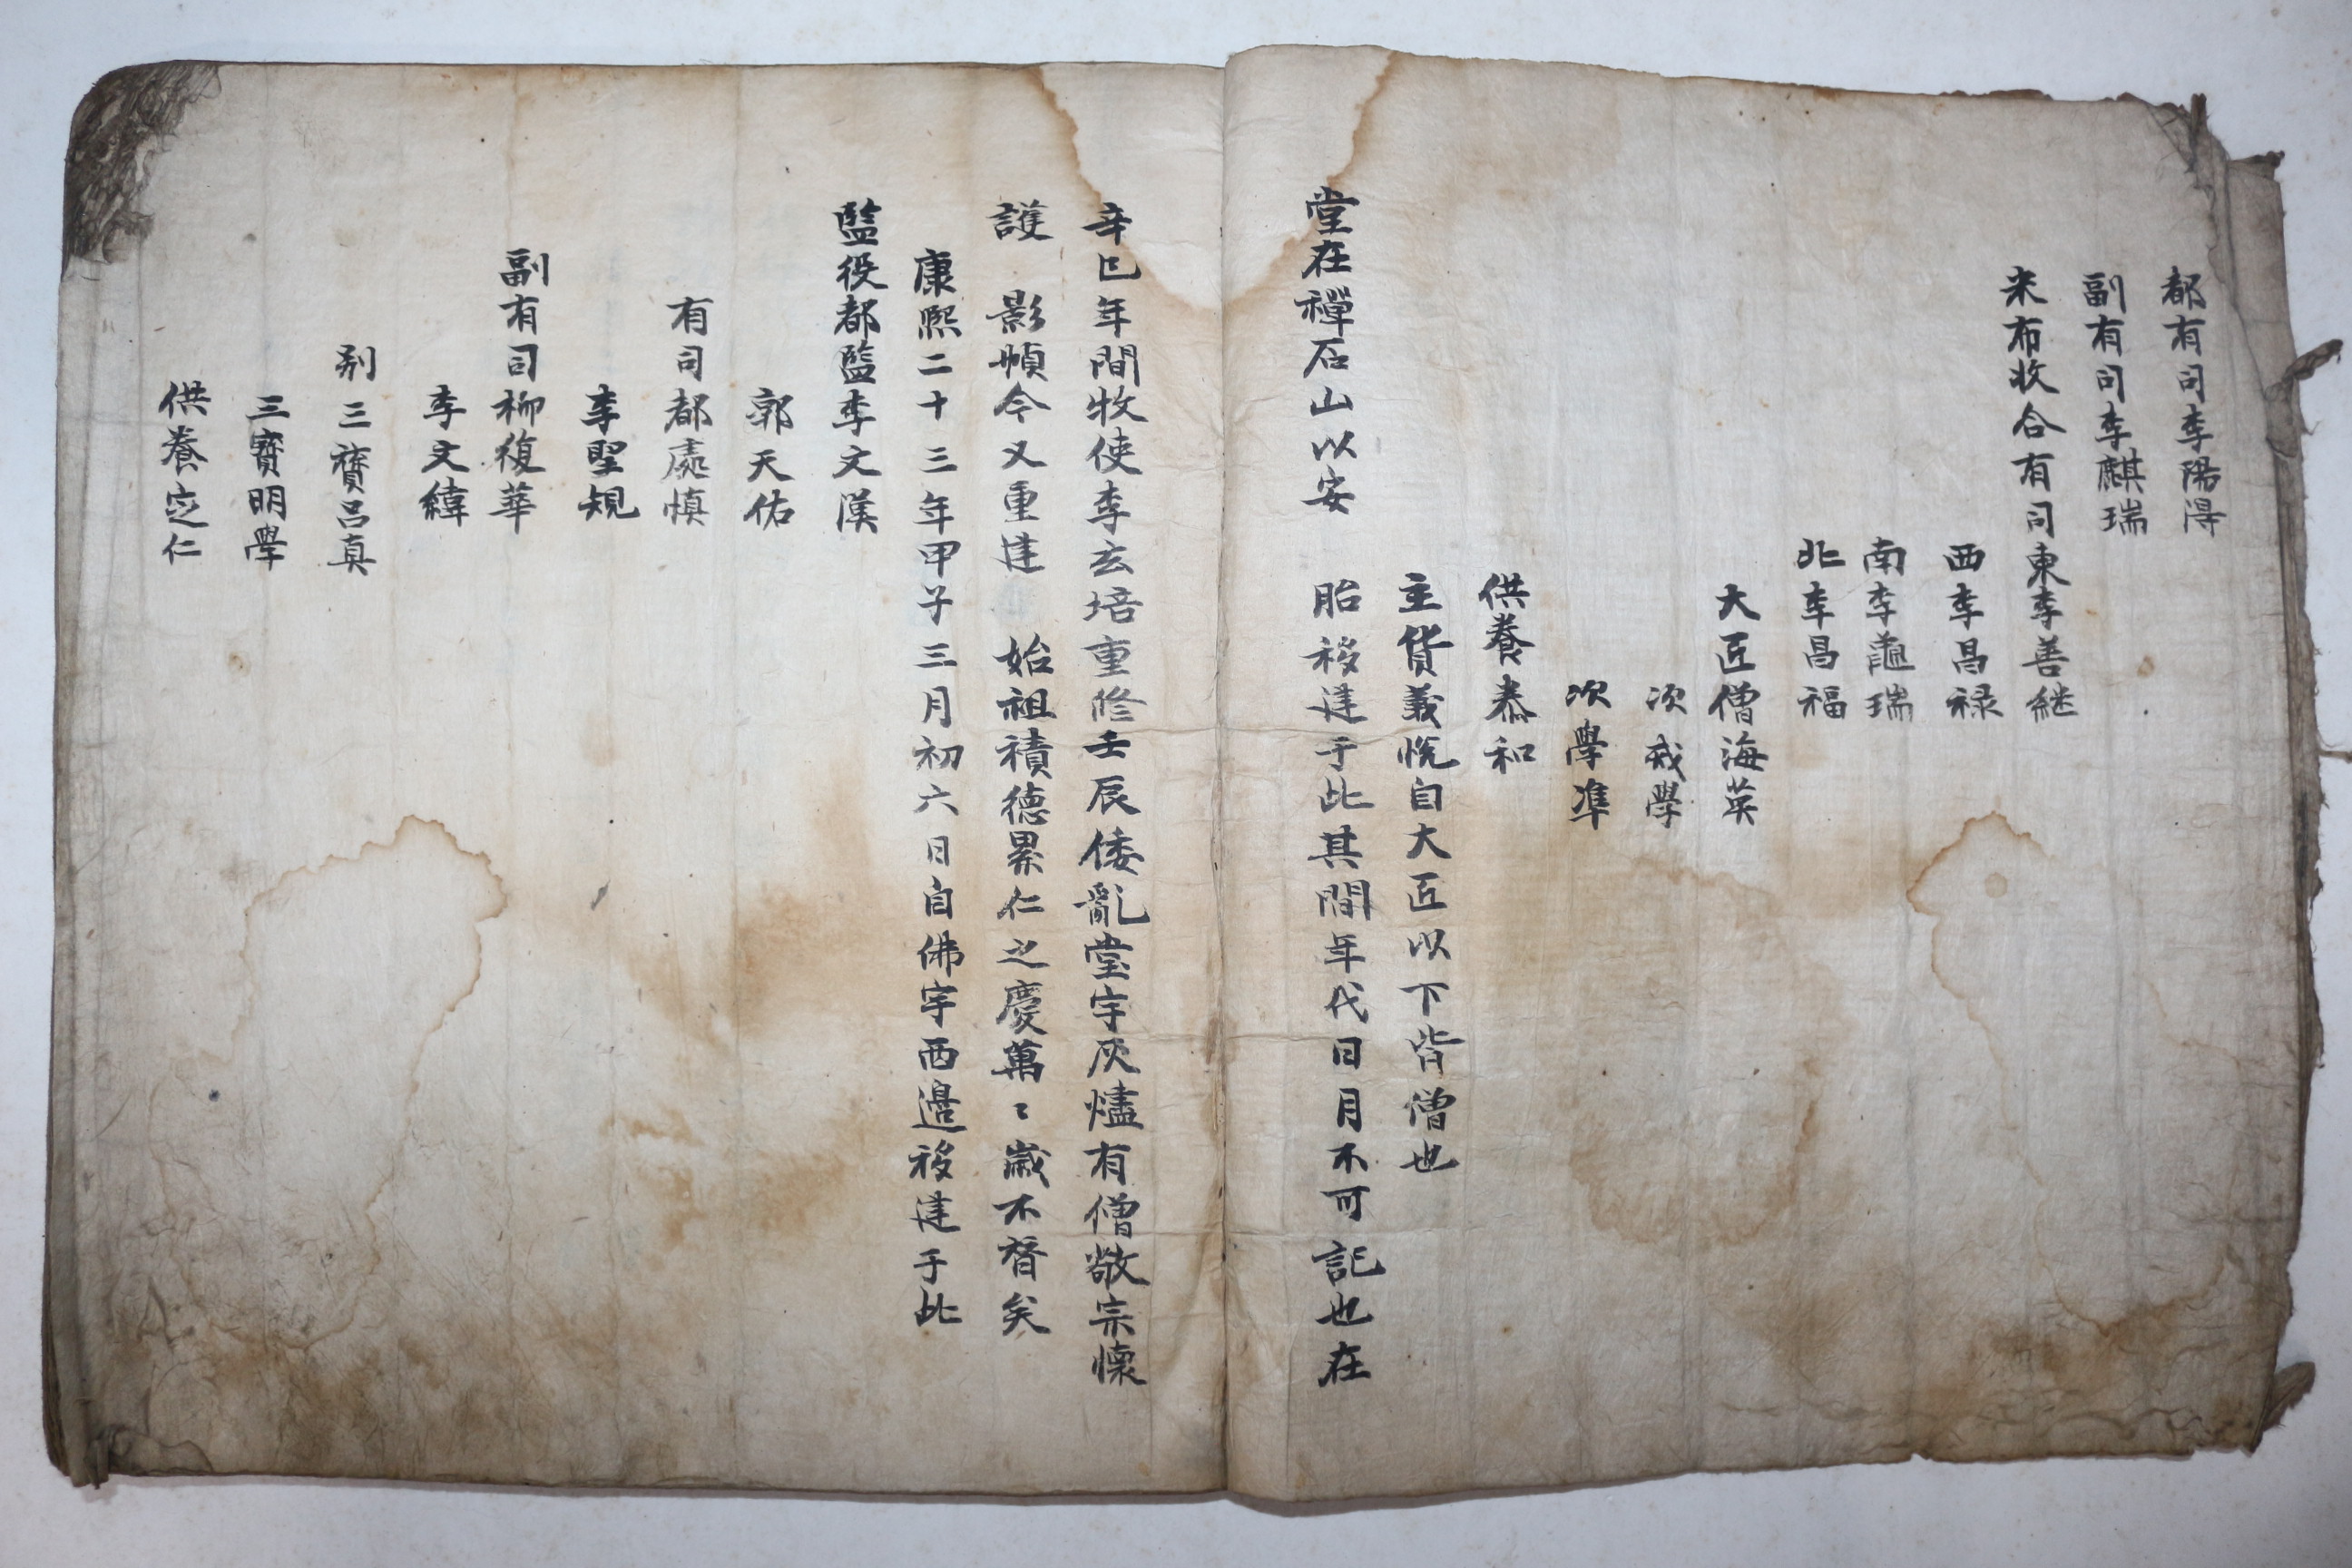 都有司李陽得
副有司李麒瑞
米布收合有司東李善継
西李昌禄
南李龜瑞
北李昌福
大匠僧海英
次戒學
次學準
供養泰和
主貨義悅自大匠以下皆僧也
堂在禪石山以安 胎移建于此其間年代日月不可記也在
辛巳年間牧使李玄培重修壬辰倭亂堂宇灰燼有僧敬宗懷
護 影幀今又重建 始祖積德累仁之慶萬〻歲不替矣
康熙二十三年甲子三月初六日自佛宇西邊移建于此
監役都監李文漢
郭天佑
有司都處慎
李聖規
副有司柳復華
李文緯
别三寶呂真
三寶明學
供養定仁